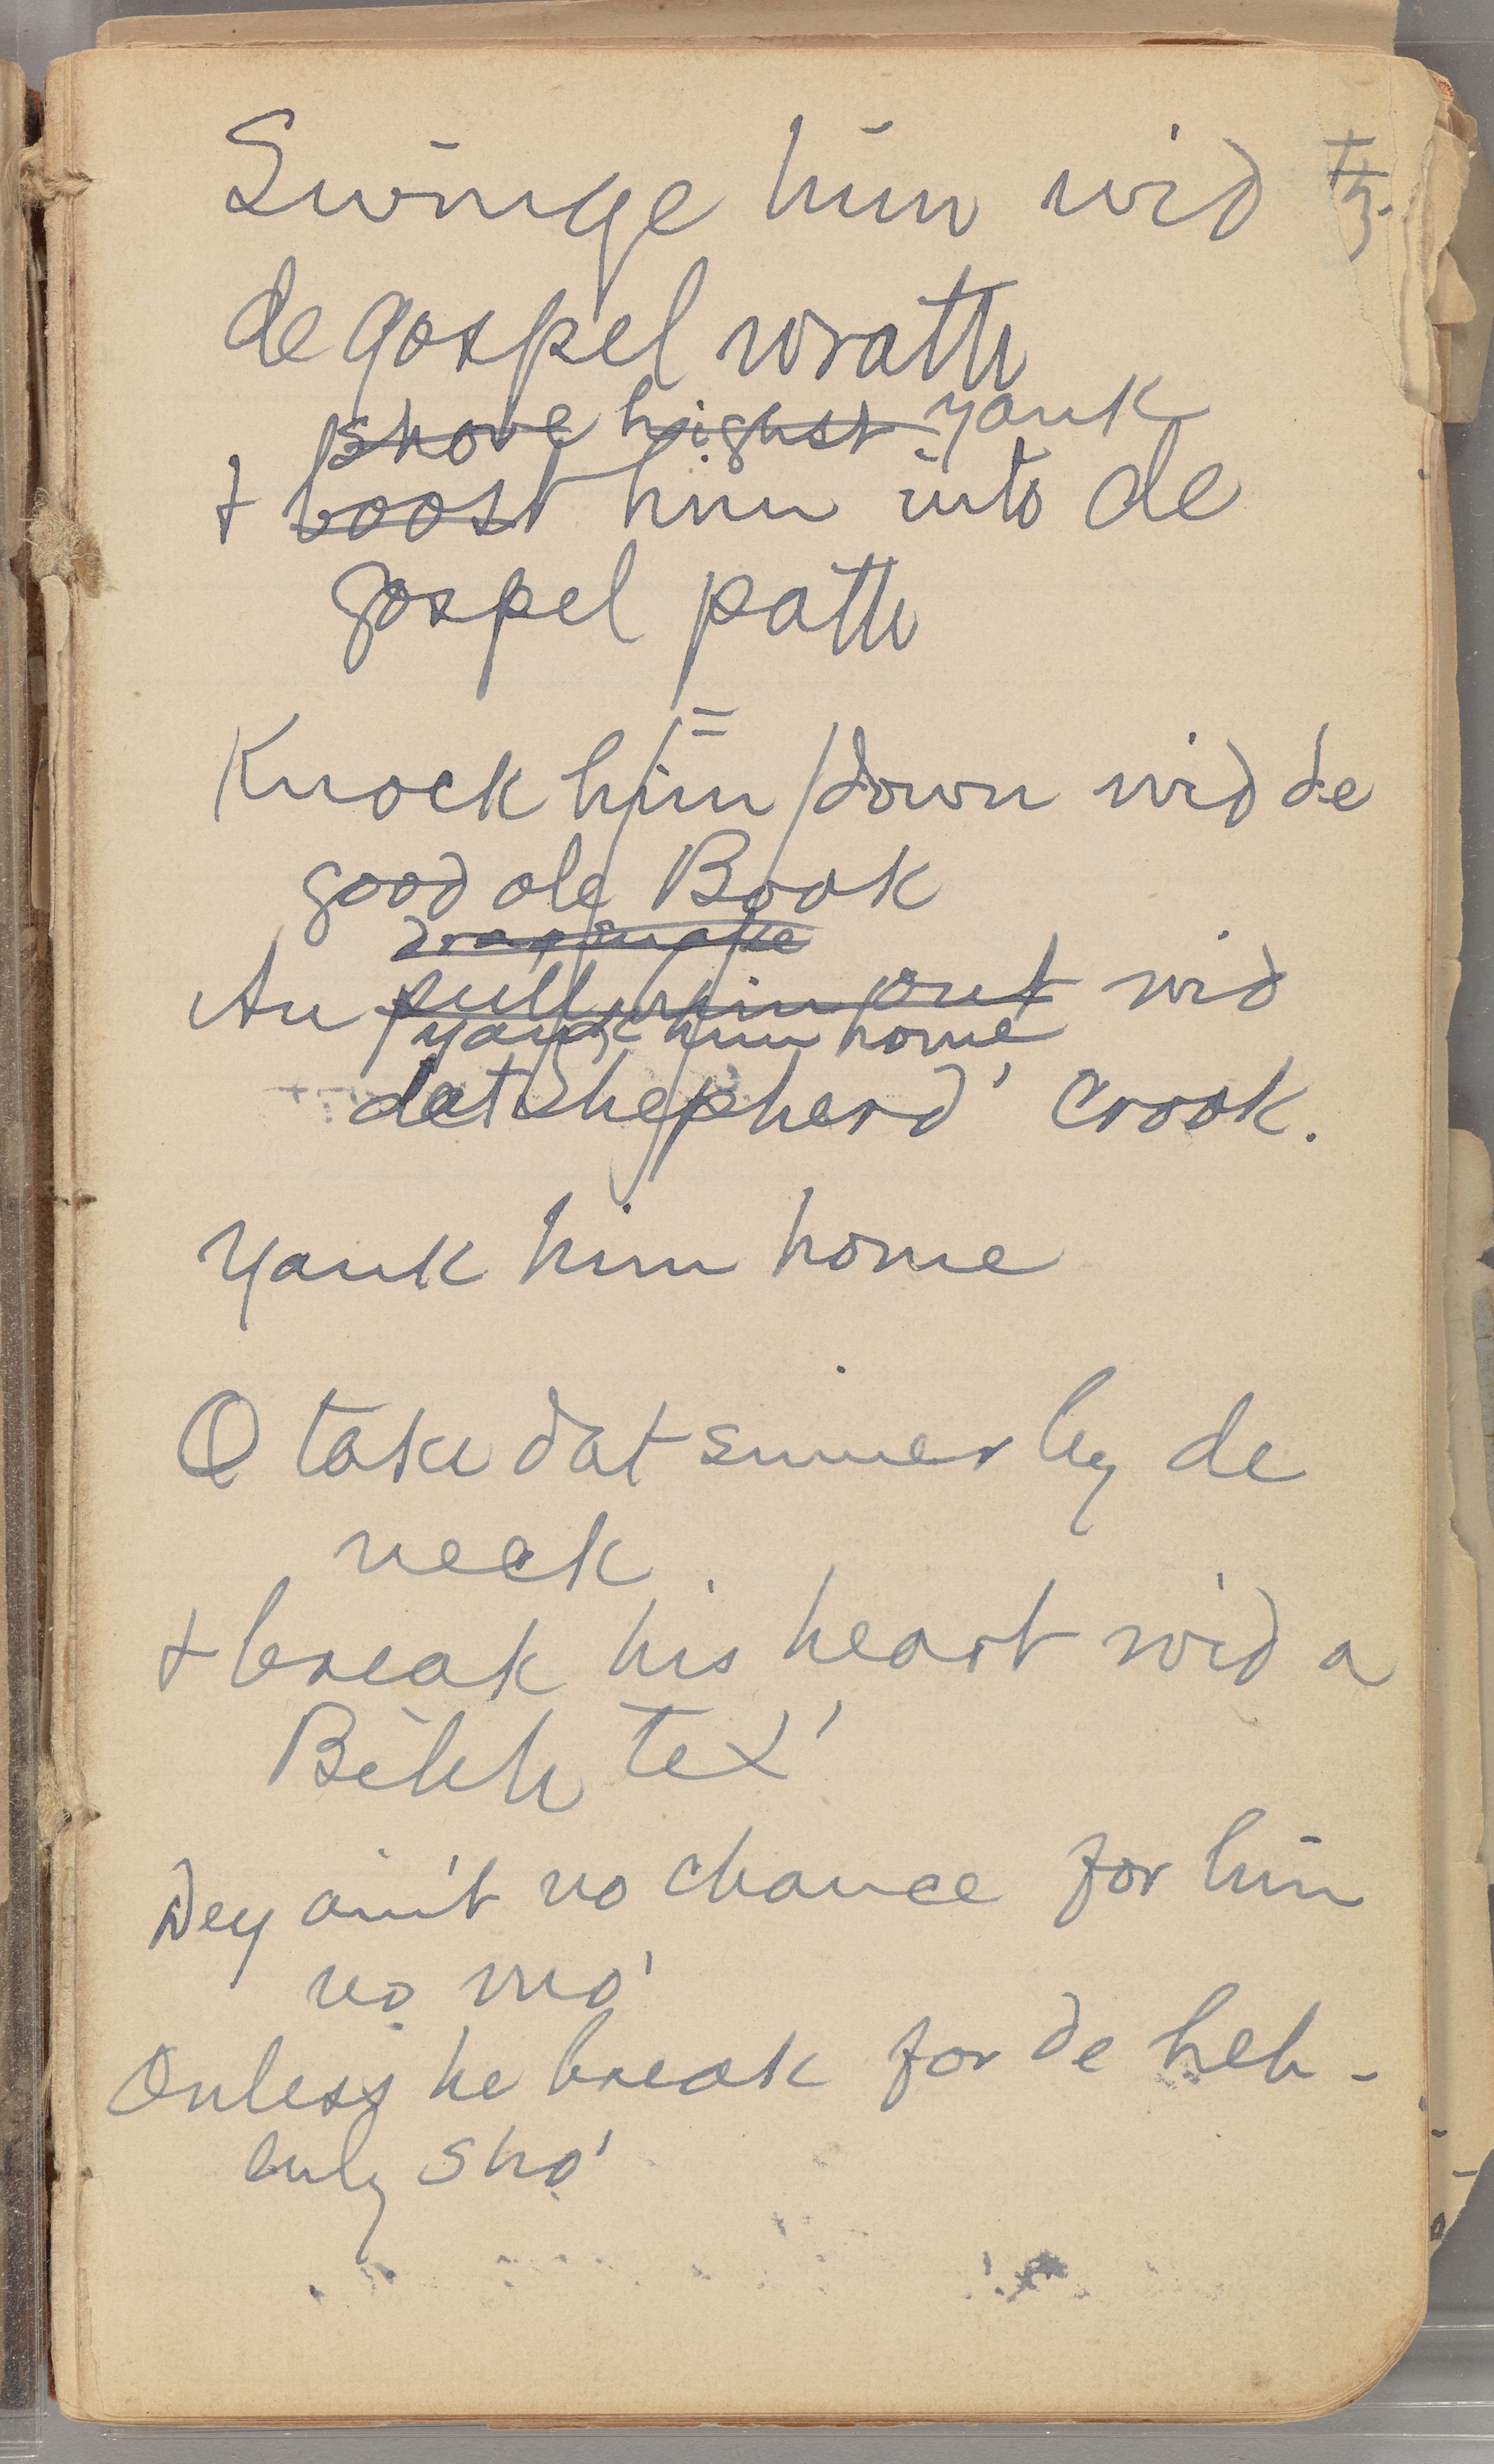 Swinge him wid
de gospel wrath
shove highst yank
+ boost him into de
gospel path
Knock him down wid de
good ole Book
drag snake
An pull him out wid
yank him home
dat Shepherd' Crook.
Yank him home
O take dat sinner by de
neck
+ break his heart wid a
Bible tex'
Dey ain't no chance for him
no mo'
Onless he break for de heb-
enly sho'